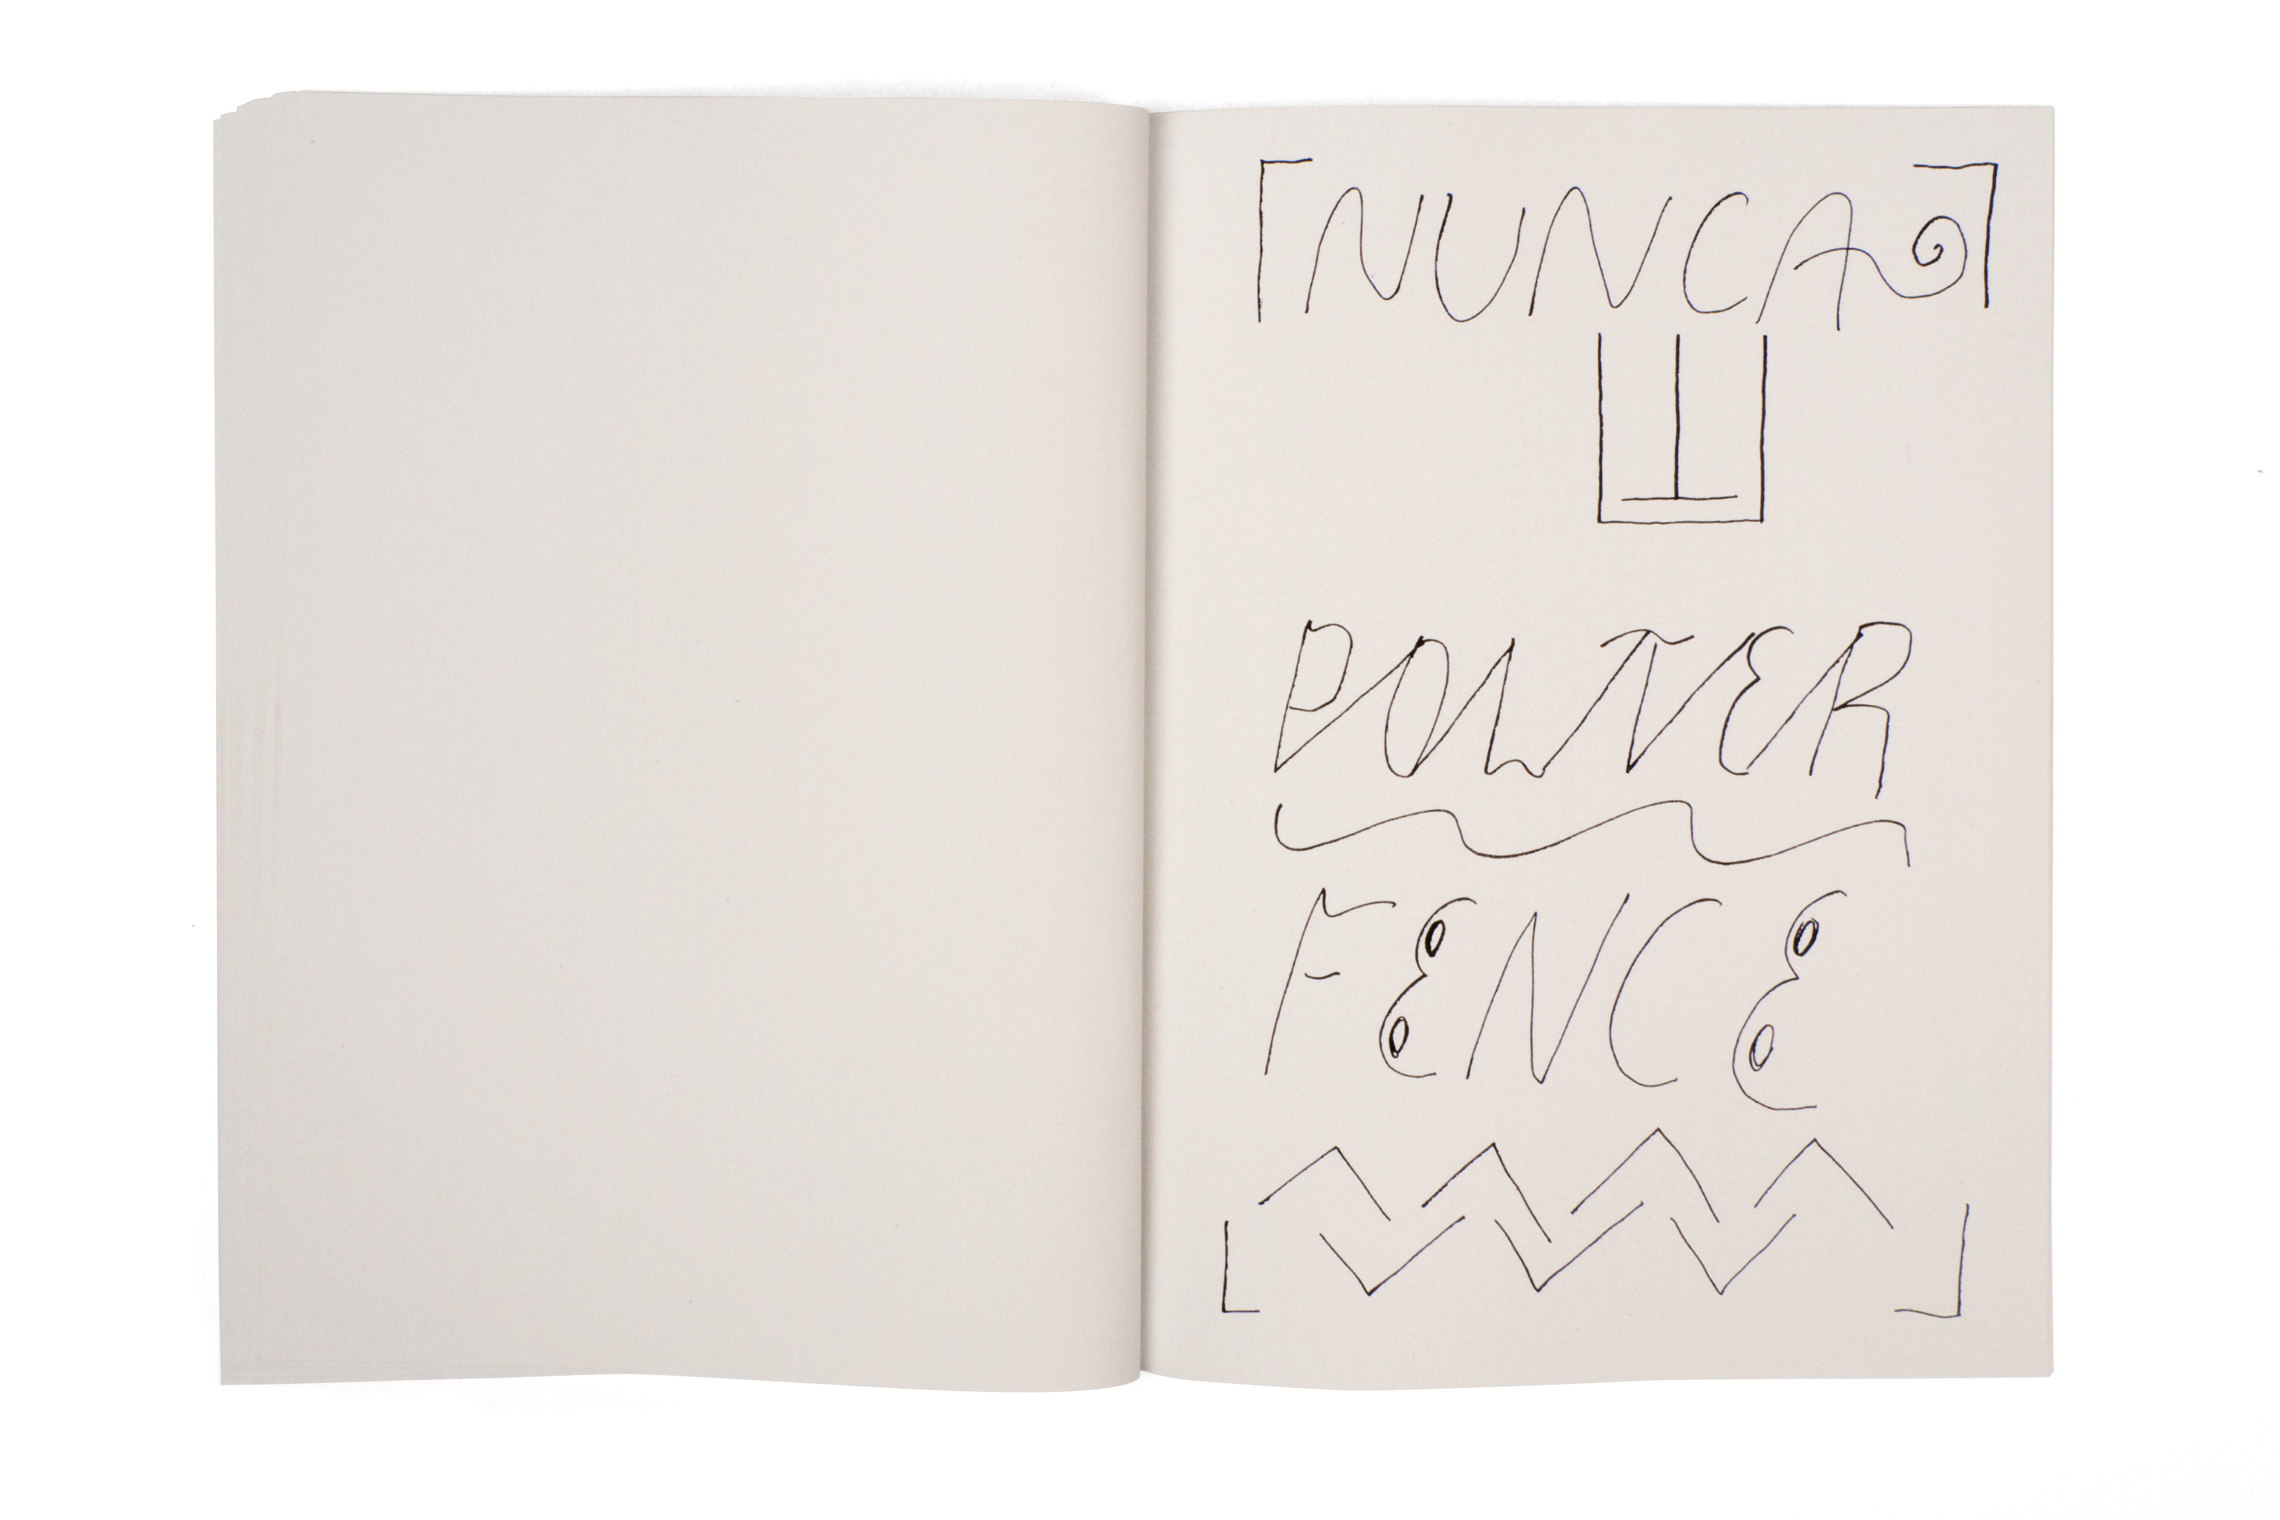 NUNCA
POLTER
FENCE